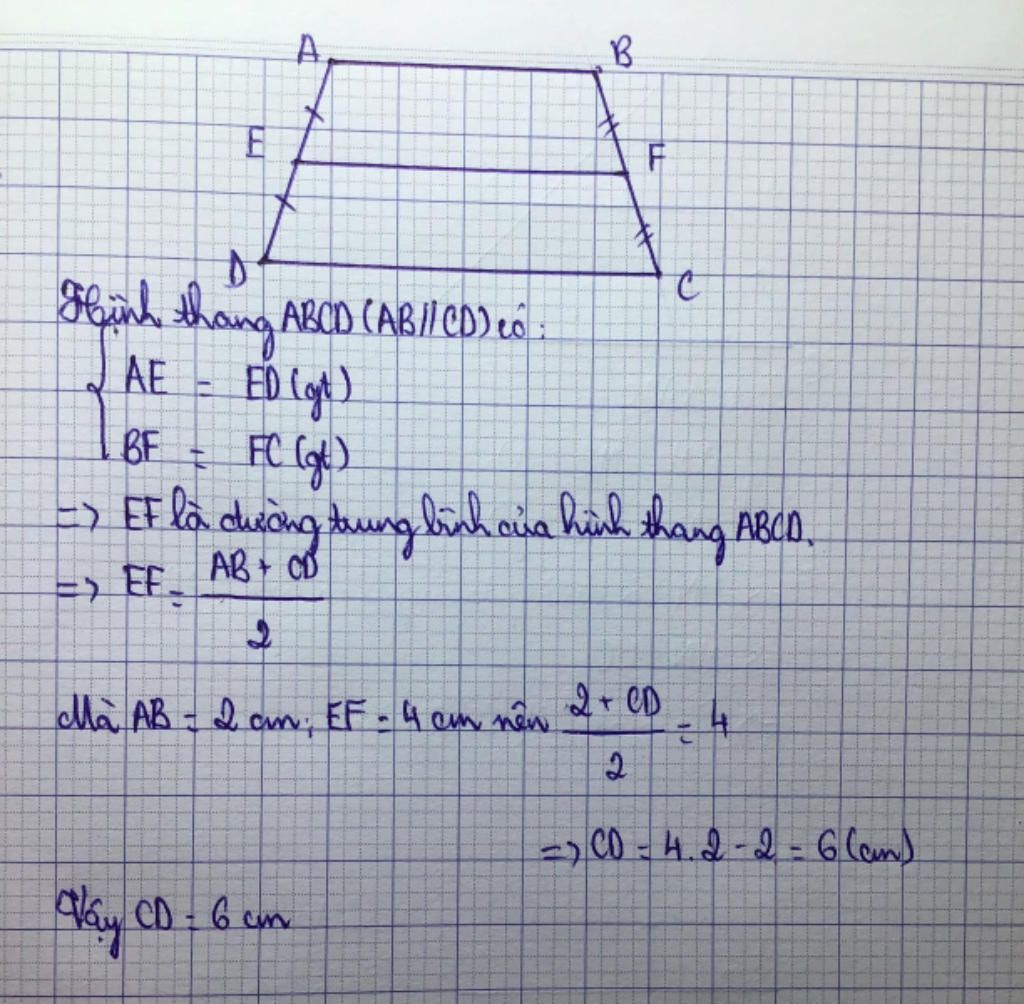 A B
E F
D C
Hình thang ABCD (AB//CD) có:
AE = ED (gt)
BF = FC (gt)
=> EF là đường trung bình của hình thang ABCD.
=> EF = AB + CD
2
Mà AB = 2 cm; EF = 4 cm nên 2 + CD = 4
2
=> CD = 4.2 - 2 = 6 (cm)
Vậy CD = 6 cm